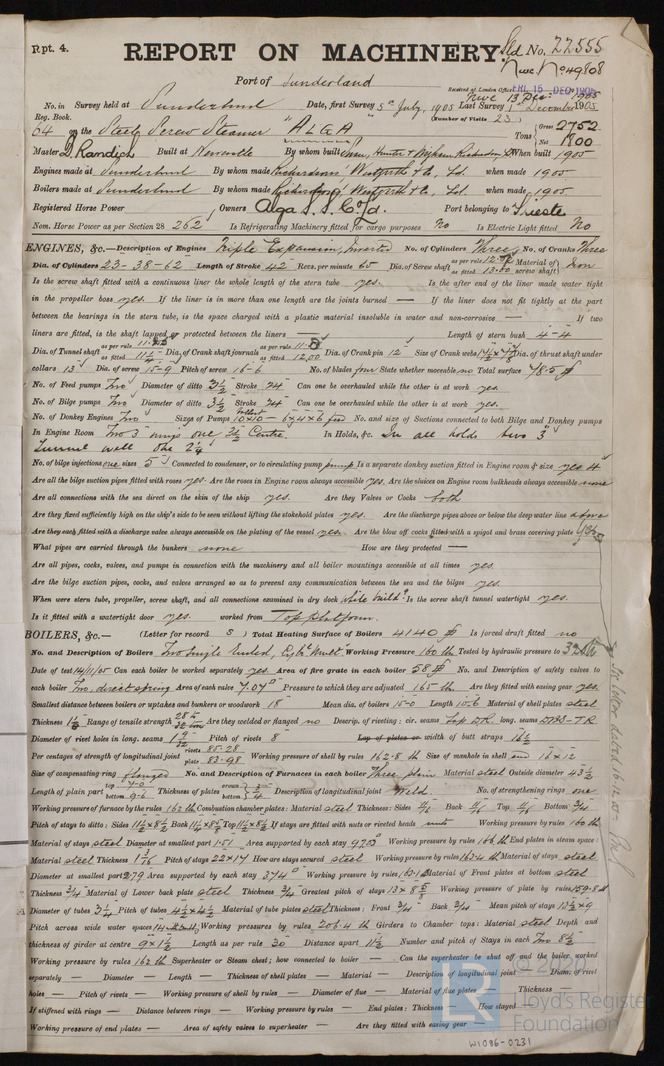 Rpt. 4.
REPORT ON MACHINERY.
Sld No. 22555
Nwc. No 49808
Port of Sunderland
Received at London Office FRI. 15 DEC. 1905
No. in Survey held at Sunderland Date, first Survey 5th July, 1905 Last Survey 1st December 1905
Reg. Book. (Number of Visits 23)
64 on the Steel Screw Steamer "ALGA" Tons Gross 2752 Net 1800
Master D. Randich Built at Newcastle By whom built Swan, Hunter & Wigham Richardson Ld When built 1905
Engines made at Sunderland By whom made Richardsons Westgarth & Co., Ld. when made 1905
Boilers made at Sunderland By whom made Richardsons Westgarth & Co., Ld. when made 1905
Registered Horse Power Owners Alga S.S. Co. Ld. Port belonging to Trieste
Nom. Horse Power as per Section 28 262 Is Refrigerating Machinery fitted for cargo purposes No Is Electric Light fitted No
ENGINES, &c.—Description of Engines Triple Expansion, Inverted No. of Cylinders Three No. of Cranks Three
Dia. of Cylinders 23-38-62 Length of Stroke 42 Revs. per minute 65 Dia. of Screw shaft as per rule as fitted 13.00 Material of screw shaft Iron
Is the screw shaft fitted with a continuous liner the whole length of the stern tube yes. Is the after end of the liner made water tight
in the propeller boss yes. If the liner is in more than one length are the joints burned — If the liner does not fit tightly at the part
between the bearings in the stern tube, is the space charged with a plastic material insoluble in water and non-corrosive — If two
liners are fitted, is the shaft lapped or protected between the liners — Length of stern bush 4-4
Dia. of Tunnel shaft as per rule as fitted Dia. of Crank shaft journals as per rule as fitted 12.00 Dia. of Crank pin 12 Size of Crank webs Dia. of thrust shaft under
collars 13 Dia. of screw 15-9 Pitch of screw 16-6 No. of blades four State whether moveable no Total surface 78.5
No. of Feed pumps Two Diameter of ditto 3½ Stroke 24 Can one be overhauled while the other is at work yes
No. of Bilge pumps Two Diameter of ditto 3½ Stroke 24 Can one be overhauled while the other is at work yes.
No. of Donkey Engines Two Sizes of Pumps ballast 10x10 – 6x4x6 feed No. and size of Suctions connected to both Bilge and Donkey pumps
In Engine Room Two 3 wings one 3½ Centre. In Holds, &c. In all holds two 3
Tunnel well one 2¼
No. of bilge injections one sizes 5 Connected to condenser, or to circulating pump pump Is a separate donkey suction fitted in Engine room & size yes 4
Are all the bilge suction pipes fitted with roses yes. Are the roses in Engine room always accessible yes. Are the sluices on Engine room bulkheads always accessible none
Are all connections with the sea direct on the skin of the ship yes. Are they Valves or Cocks both
Are they fixed sufficiently high on the ship's side to be seen without lifting the stokehold plates yes. Are the discharge pipes above or below the deep water line above
Are they each fitted with a discharge valve always accessible on the plating of the vessel yes. Are the blow off cocks fitted with a spigot and brass covering plate yes
What pipes are carried through the bunkers none How are they protected —
Are all pipes, cocks, valves, and pumps in connection with the machinery and all boiler mountings accessible at all times yes.
Are the bilge suction pipes, cocks, and valves arranged so as to prevent any communication between the sea and the bilges yes.
When were stern tube, propeller, screw shaft, and all connections examined in dry dock while build? Is the screw shaft tunnel watertight yes.
Is it fitted with a watertight door yes. worked from Top platform.
BOILERS, &c.— (Letter for record S) Total Heating Surface of Boilers 4140 Is forced draft fitted no
No. and Description of Boilers Two Single Ended, Cyl. Mult. Working Pressure 160 lb Tested by hydraulic pressure to 320 lb
Date of test 14/11/05 Can each boiler be worked separately yes. Area of fire grate in each boiler 58 No. and Description of safety valves to
each boiler Two, direct spring Area of each valve 7.07 Pressure to which they are adjusted 165 lb Are they fitted with easing gear yes.
Smallest distance between boilers or uptakes and bunkers or woodwork 18 Mean dia. of boilers 15-0 Length 10-6 Material of shell plates steel
Thickness Range of tensile strength Are they welded or flanged no Descrip. of riveting: cir. seams lap D.R. long. seams DBS-TR
Diameter of rivet holes in long. seams Pitch of rivets 8 Lap of plates or width of butt straps 16½
Per centages of strength of longitudinal joint rivets 85.28 plate 83.98 Working pressure of shell by rules 162.8 lb Size of manhole in shell end 16x12
Size of compensating ring flanged No. and Description of Furnaces in each boiler Three plain Material steel Outside diameter 43½
Length of plain part top bottom Thickness of plates crown bottom Description of longitudinal joint Weld No. of strengthening rings one
Working pressure of furnace by the rules 162 lb Combustion chamber plates: Material steel Thickness: Sides Back Top Bottom
Pitch of stays to ditto: Sides Back Top If stays are fitted with nuts or riveted heads nuts Working pressure by rules 160 lb
Material of stays steel Diameter at smallest part 1.51 Area supported by each stay Working pressure by rules 166 lb End plates in steam space:
Material steel Thickness Pitch of stays 22x17 How are stays secured steel Working pressure by rules 163.4 lb Material of stays steel
Diameter at smallest part 2.79 Area supported by each stay 374 Working pressure by rules Material of Front plates at bottom steel
Thickness ¾ Material of Lower back plate steel Thickness ¾ Greatest pitch of stays Working pressure of plate by rules 159.8 lb
Diameter of tubes 3¼ Pitch of tubes 4½x4½ Material of tube plates steel Thickness: Front ¾ Back ¾ Mean pitch of stays
Pitch across wide water spaces Working pressures by rules Girders to Chamber tops: Material steel Depth and
thickness of girder at centre 9x1½ Length as per rule 30 Distance apart 11½ Number and pitch of Stays in each Two 8½
Working pressure by rules 162 lb Superheater or Steam chest; how connected to boiler — Can the superheater be shut off and the boiler worked
separately — Diameter — Length — Thickness of shell plates — Material — Description of longitudinal joint — Diam. of rivet
holes — Pitch of rivets — Working pressure of shell by rules — Diameter of flue — Material of flue plates — Thickness —
If stiffened with rings — Distance between rings — Working pressure by rules — End plates: Thickness — How stayed —
Working pressure of end plates — Area of safety valves to superheater — Are they fitted with easing gear —
© 2020
Lloyd's Register
Foundation
W1086-0231